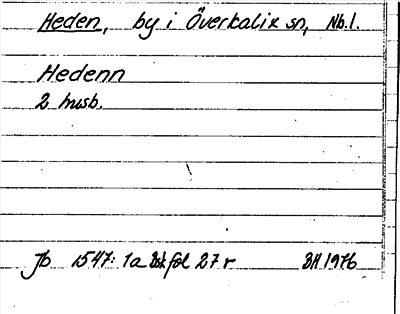 Heden, by i Överkalix sn, Nb.l.
Hedenn
2 husb.
Jb 1547: 1a Bsk fol 27 r BH 1976